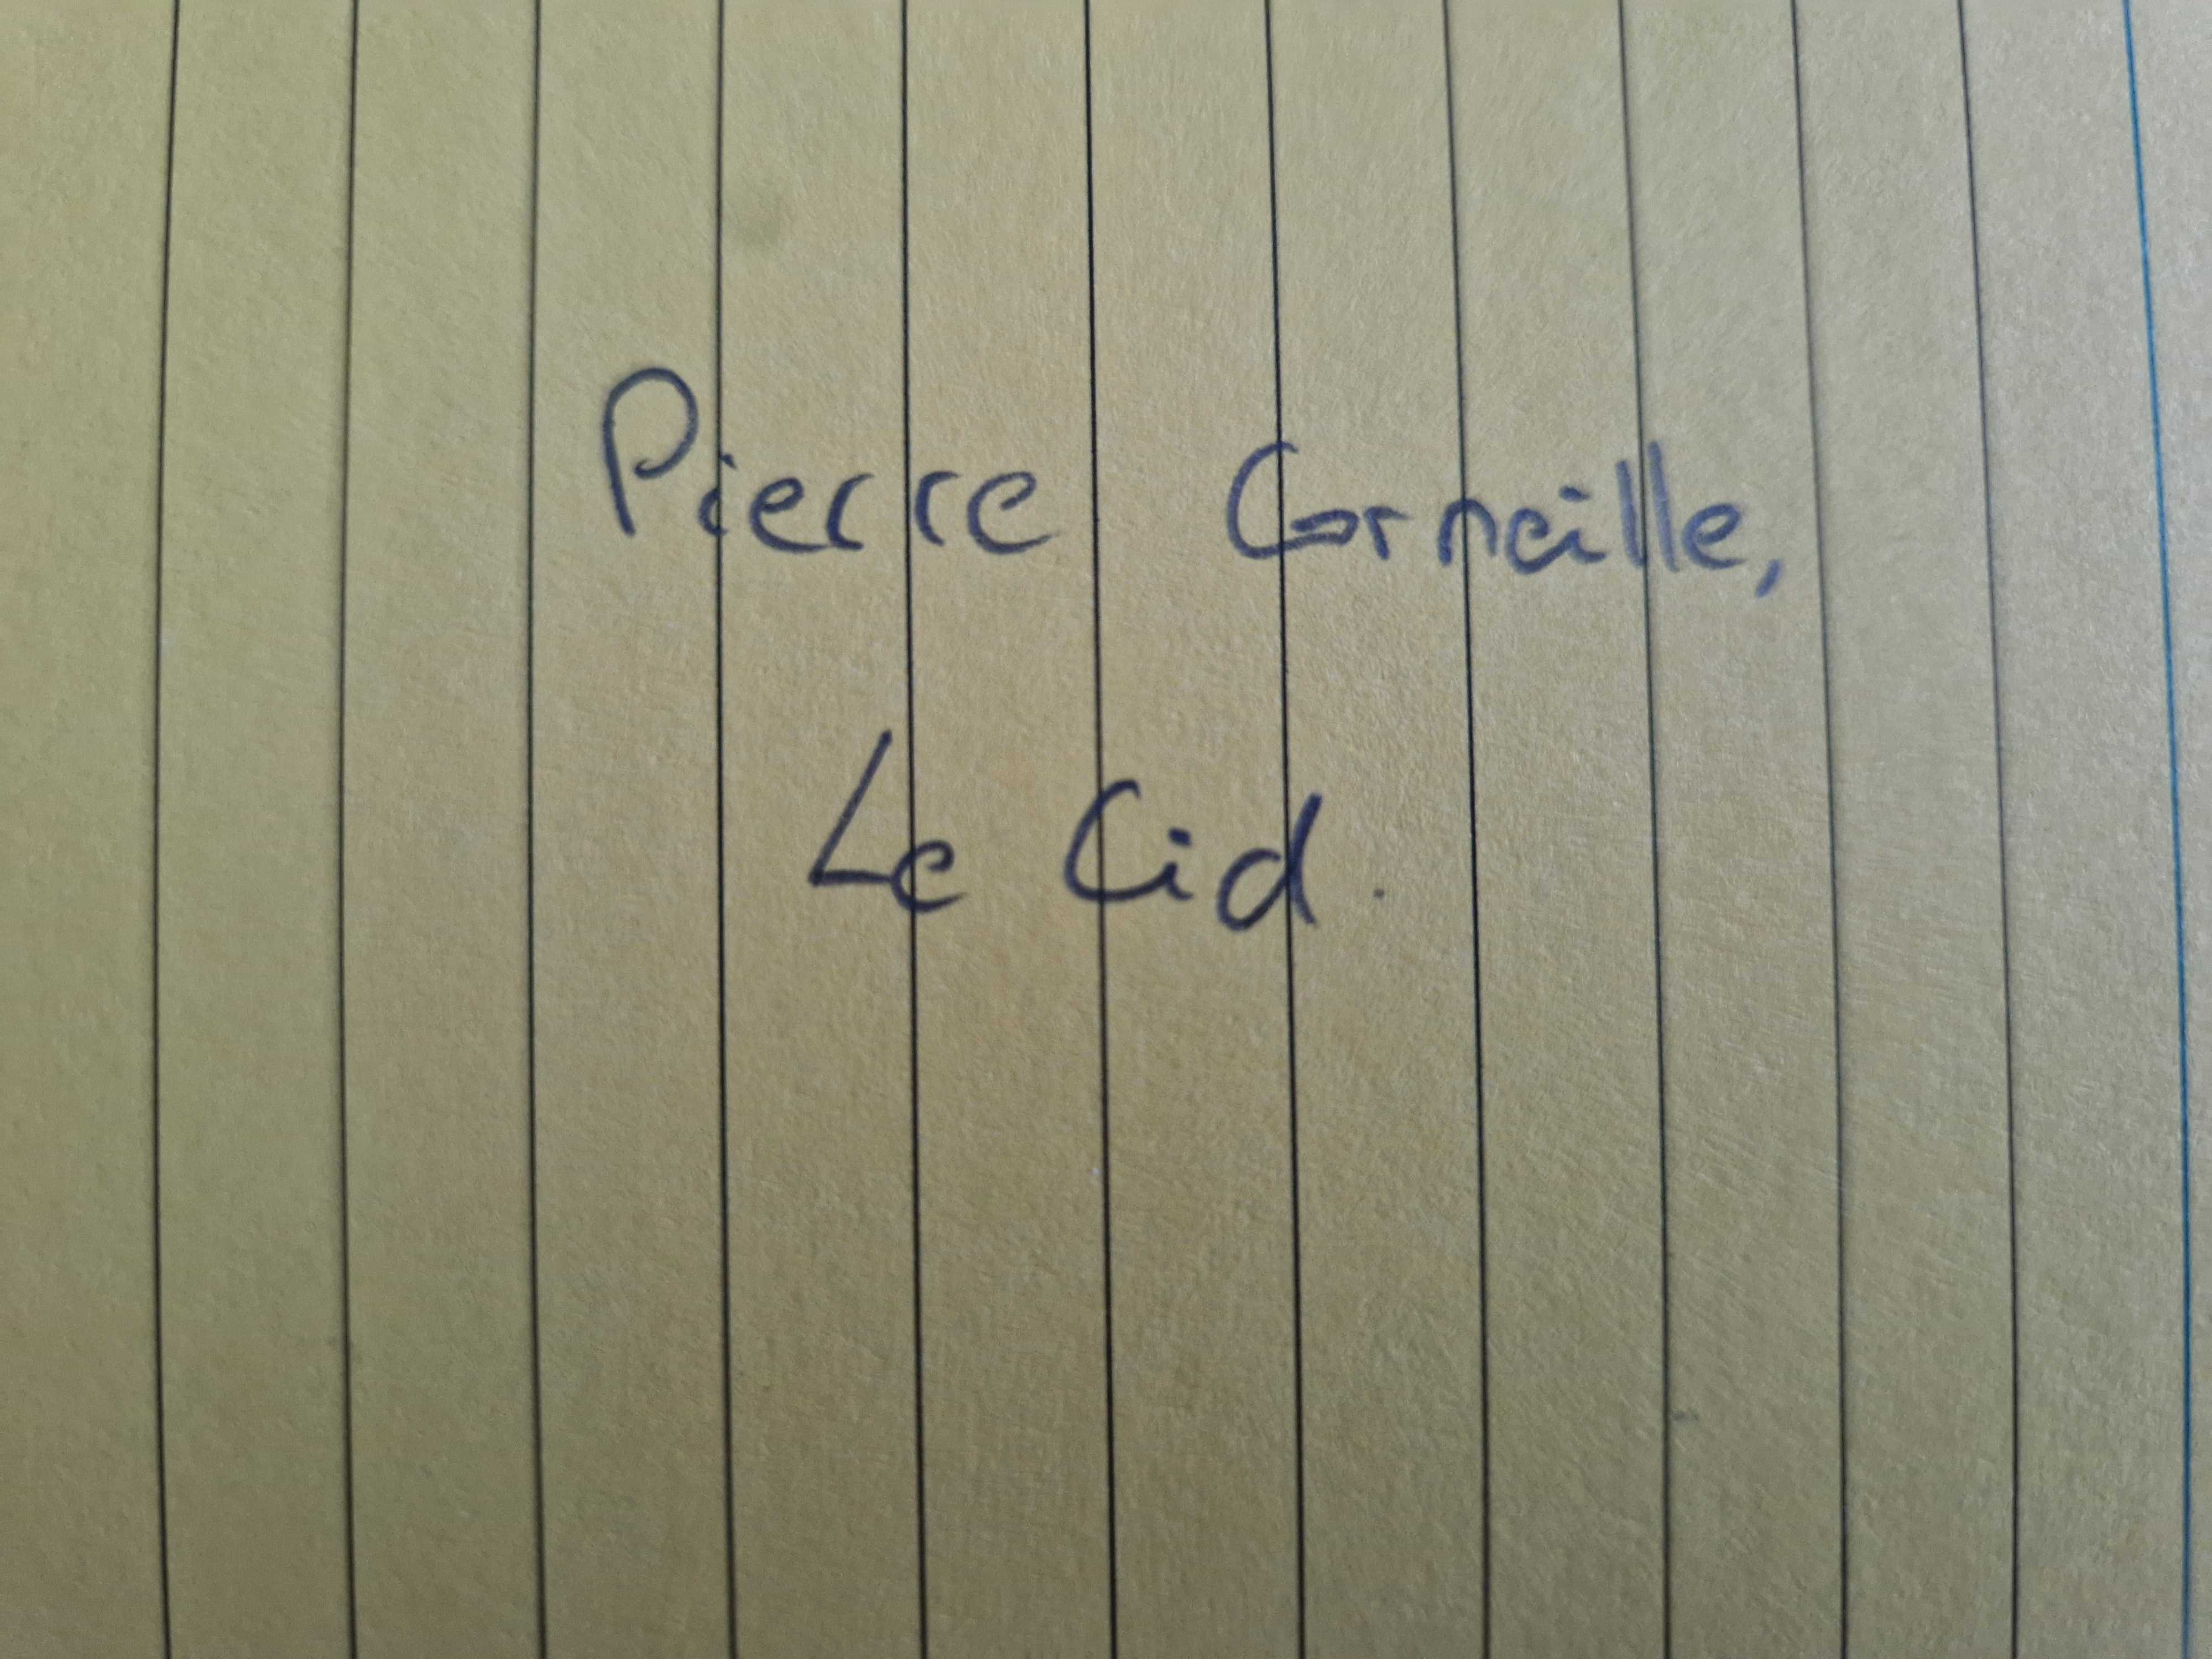 Pierre Corneille,
Le Cid.